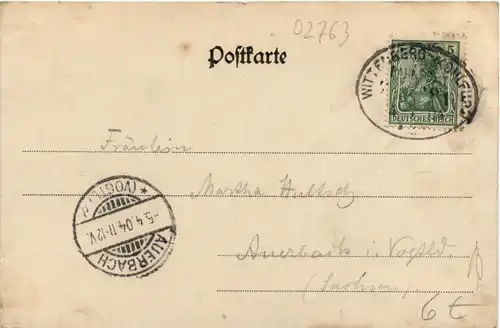 02763
Postkarte
5
WITTENBERG
DEUTSCHES REICH
Fräulein
Martha
(VOGTL.)
-5.4.04.11-12V.
AUERBACH
Auerbach i. Vogtld.
(Sachsen)
6€